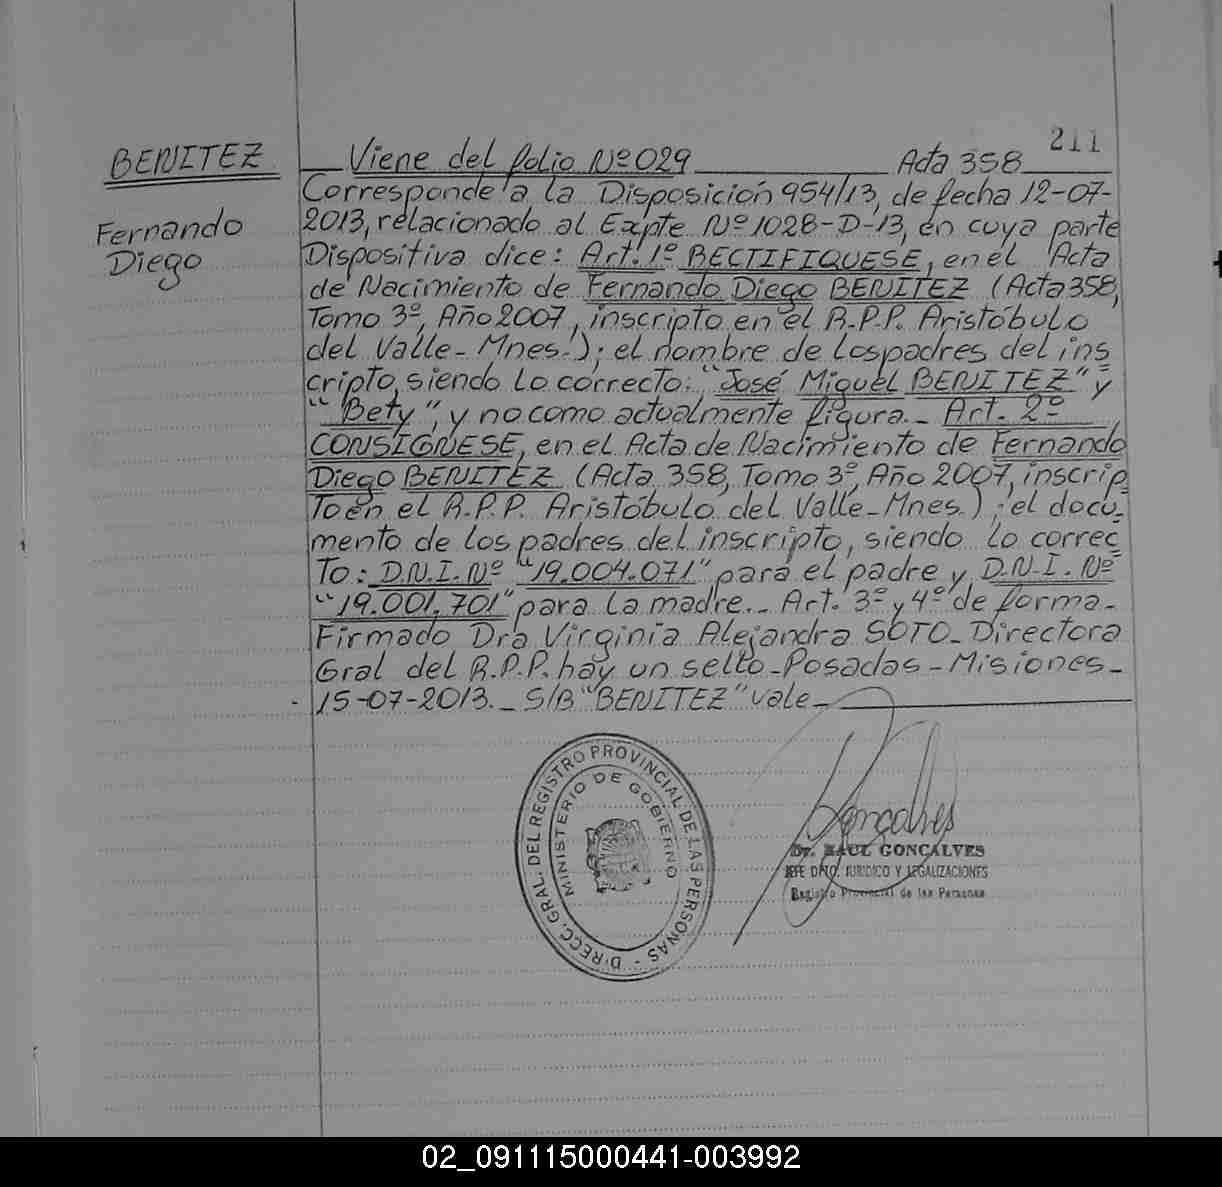 211
BENITEZ
Fernando
Diego
Viene del folio Nº 029 Acta 358
Corresponde a la Disposición 954/13, de fecha 12-07-
2013, relacionado al Expte Nº 1028-D-13, en cuya parte
Dispositiva dice: Art. 1º RECTIFIQUESE, en el Acta
de Nacimiento de Fernando Diego BENITEZ (Acta 358,
Tomo 3º, Año 2007, inscripto en el R.P.P. Aristóbulo
del Valle-Mnes.); el nombre de los padres del ins
cripto, siendo lo correcto: "José Miguel BENITEZ" y
"Bety", y no como actualmente figura.- Art. 2º
CONSIGNESE, en el Acta de Nacimiento de Fernando
Diego BENITEZ (Acta 358, Tomo 3º, Año 2007, inscrip
to en el R.P.P. Aristóbulo del Valle-Mnes.); el docu-
mento de los padres del inscripto, siendo lo correc
to: D.N.I. Nº "19.004.071" para el padre y D.N.I. Nº
"19.001.701" para la madre.- Art. 3º y 4º de forma-
Firmado Dra Virginia Alejandra SOTO-Directora
Gral del R.P.P. hay un sello-Posadas-Misiones-
15-07-2013.- S/B "BENITEZ" vale-
DIRECC. GRAL. DEL REGISTRO PROVINCIAL DE LAS PERSONAS -
MINISTERIO DE GOBIERNO
Goncalves
Dr. RAUL GONCALVES
JEFE DPTO. JURIDICO Y LEGALIZACIONES
Registro Provincial de las Personas
02_091115000441-003992